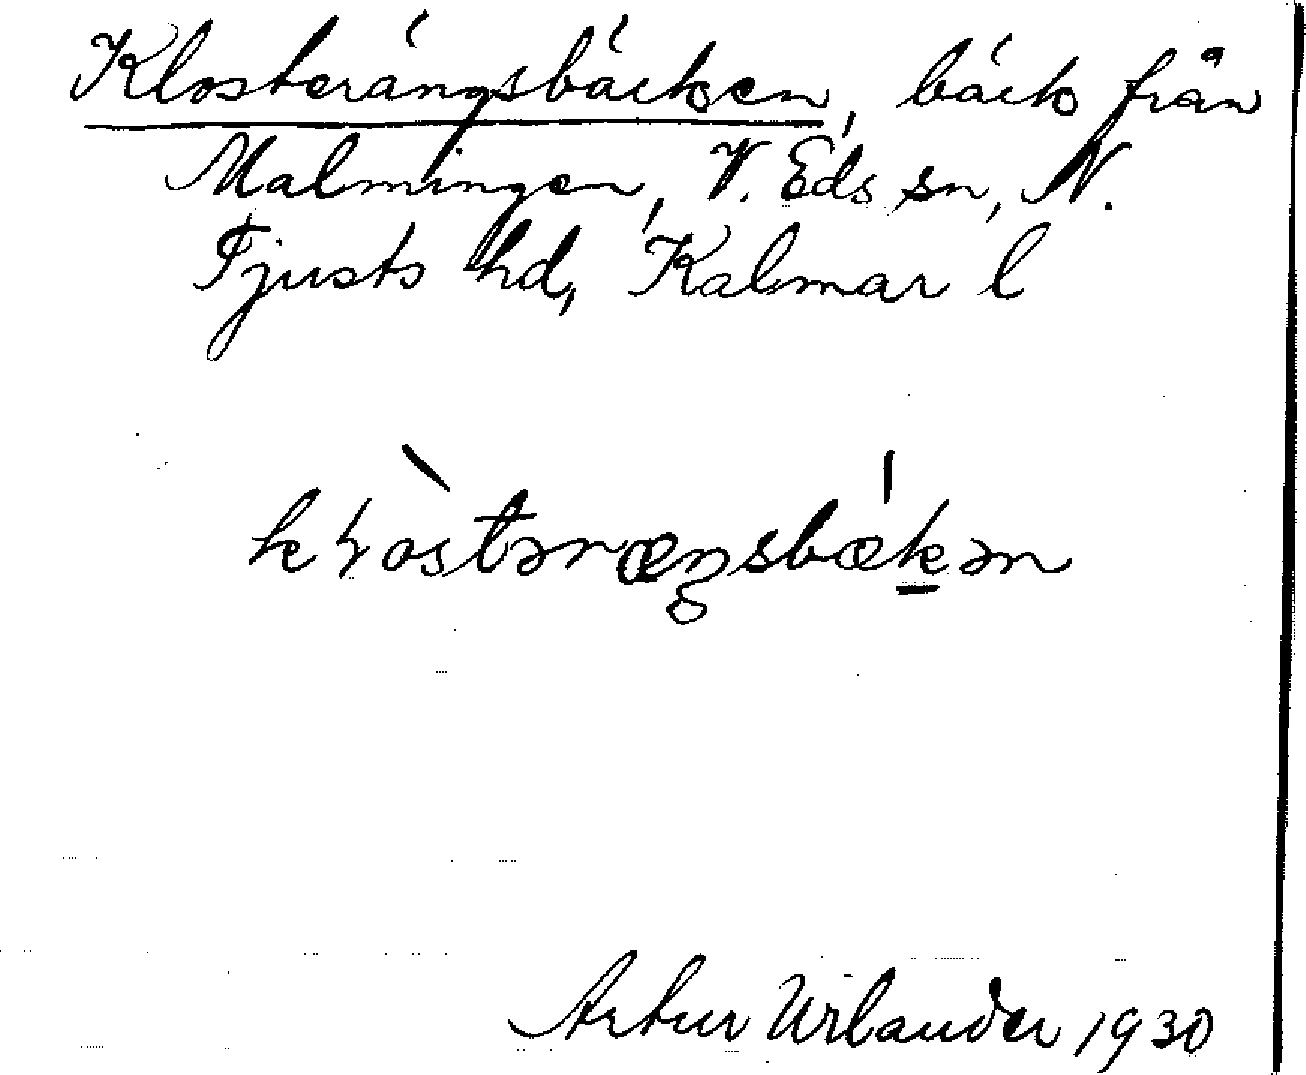 Klosterängsbäcken, bäck från
Malmingen, V. Eds sn, N.
Tjusts hd, Kalmar l
Artur Wilander 1930